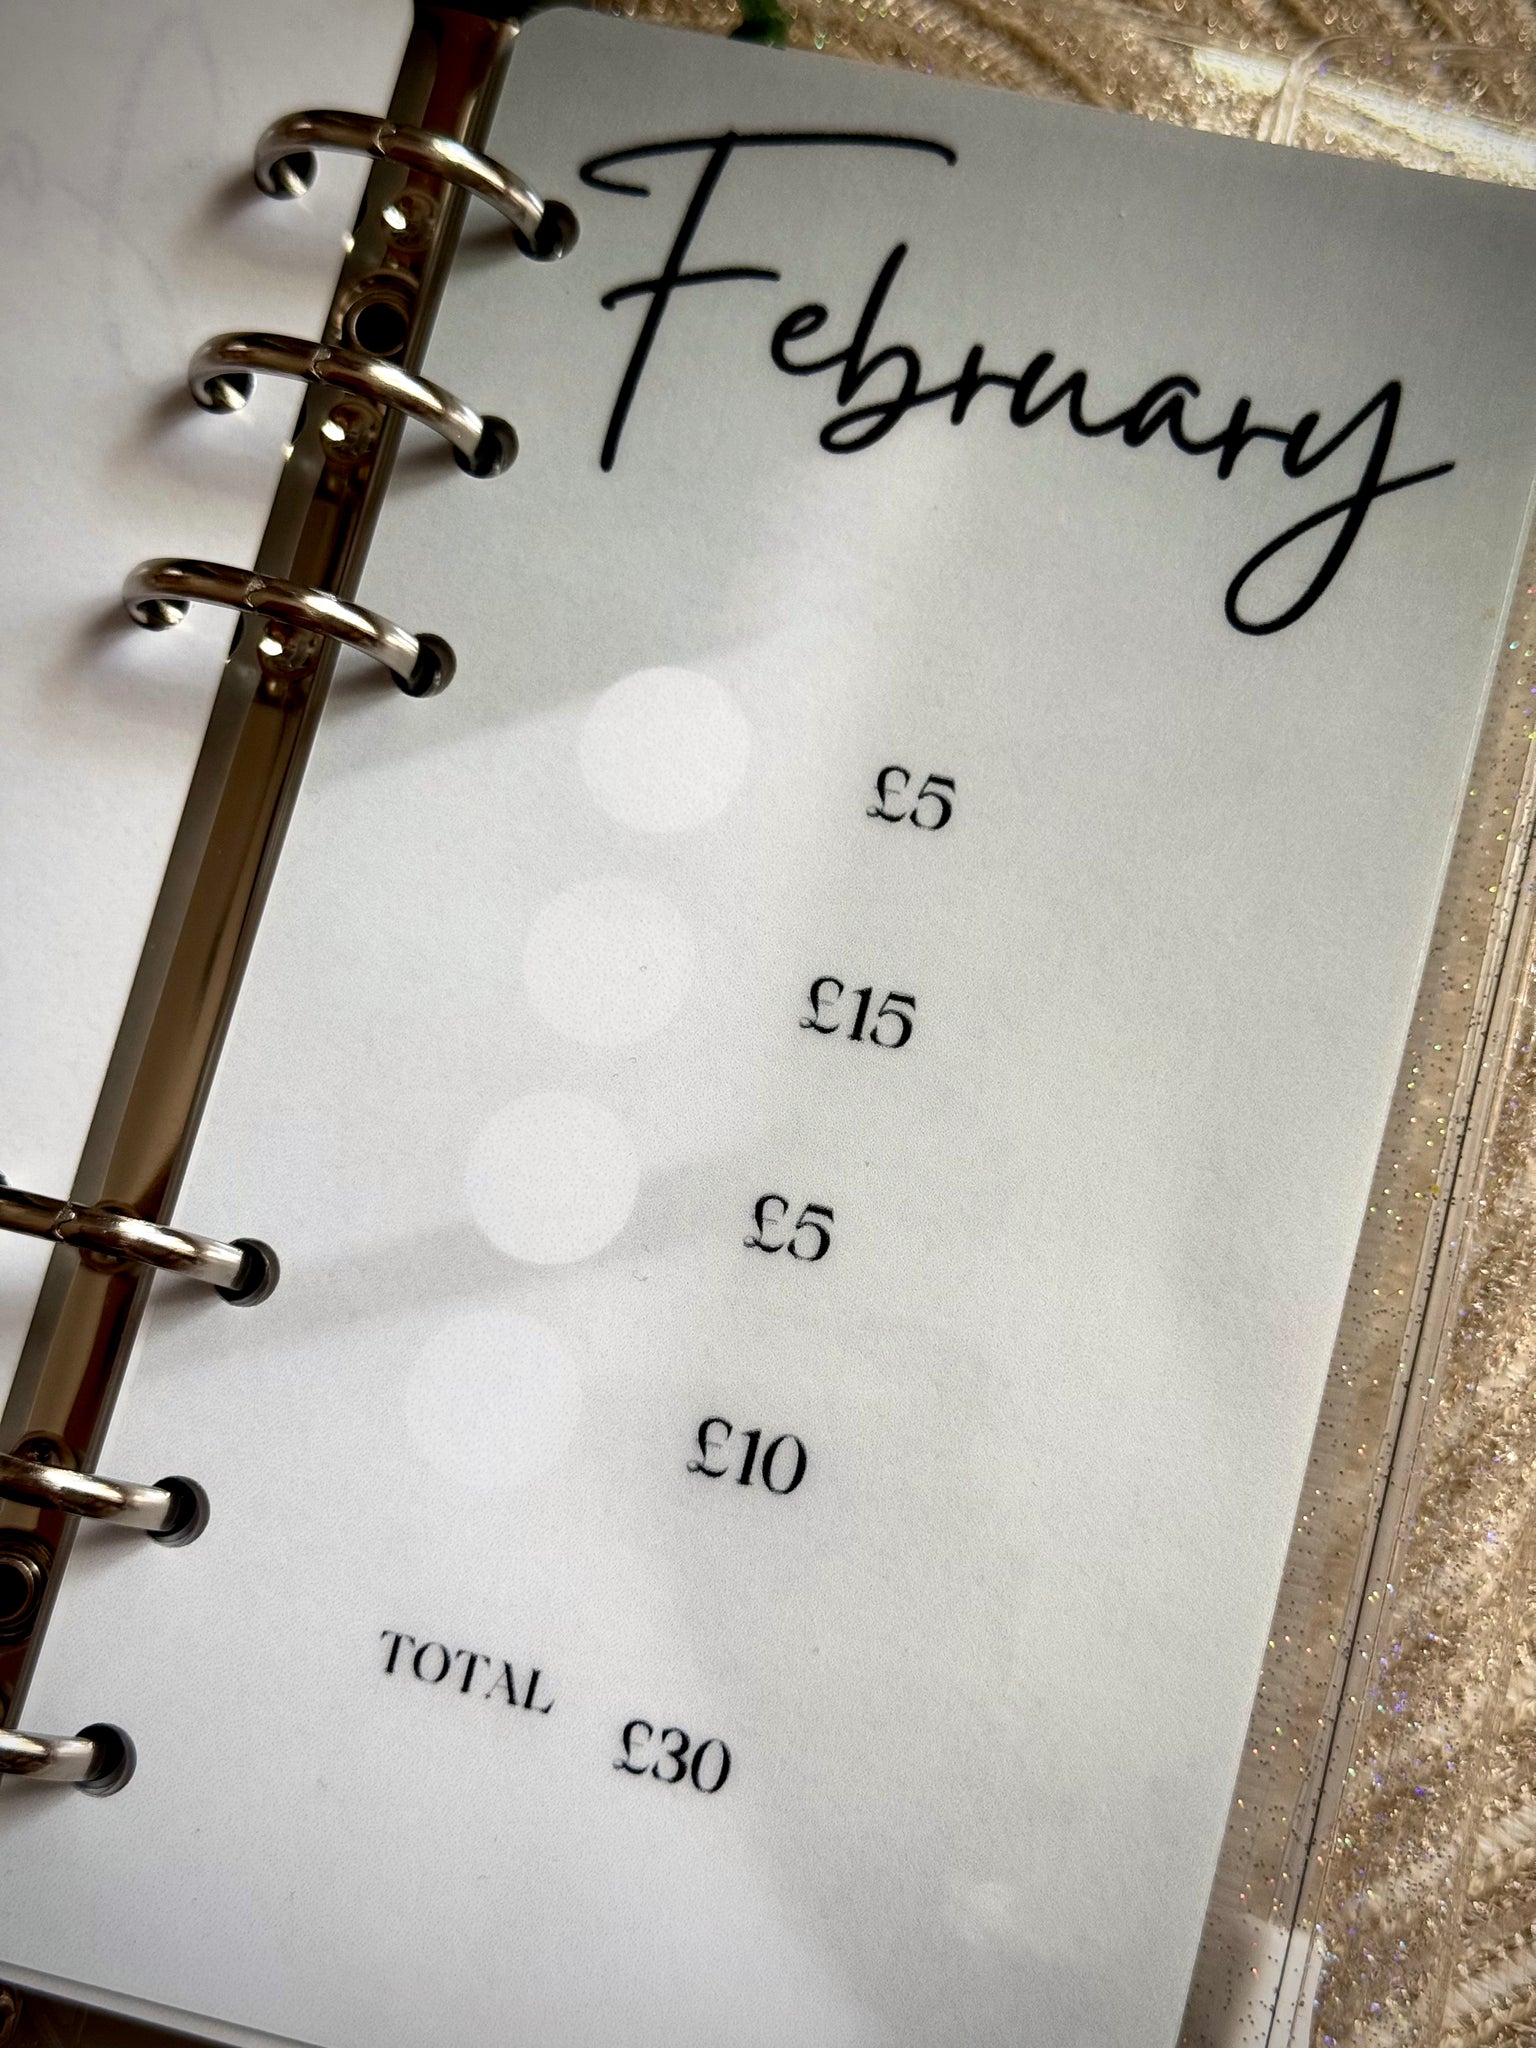 February
£5
£15
£5
£10
TOTAL £30